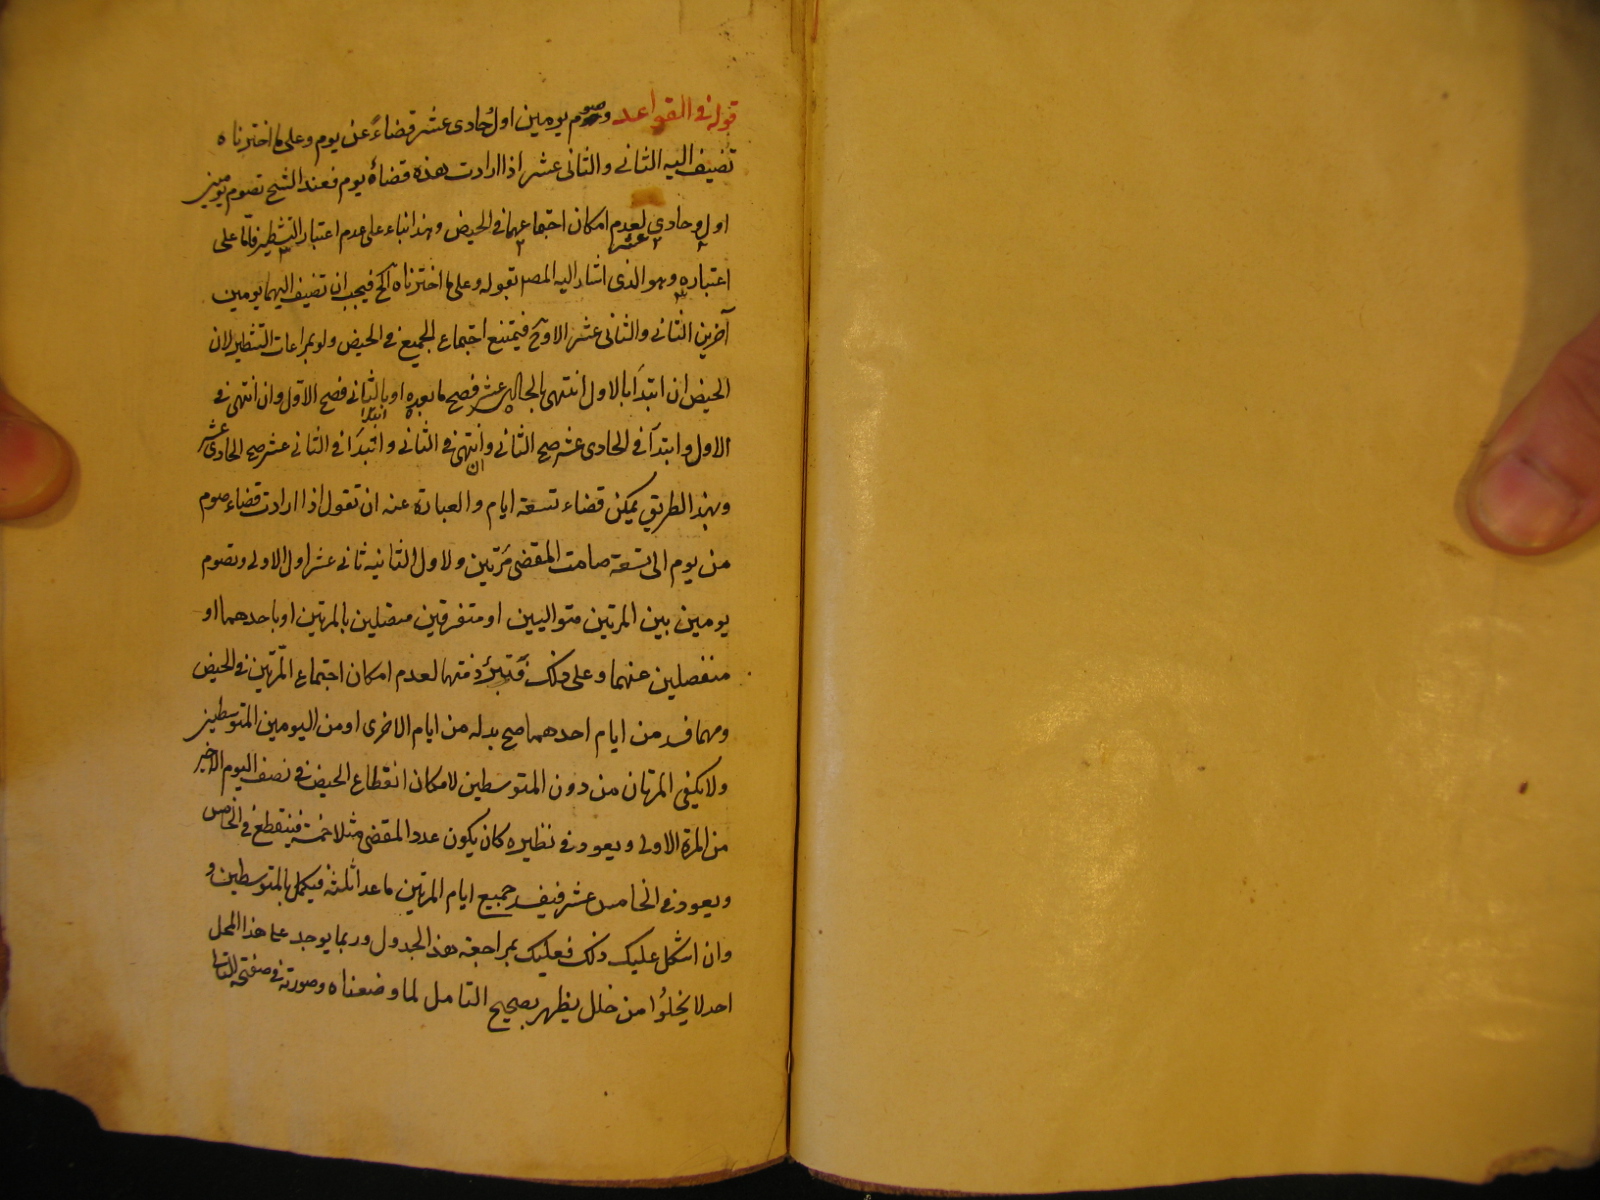 قوله في القواعد وصوم يومين اول وحادى عشر قضاءً عن يوم وعلى ما اخترناه
تضيف اليه الثانى والثانى عشر اذا ارادت هذه قضاء يوم فعند الشيخ تصوم يومين
اول وحادي عشر لعدم امكان اجتماعهما في الحيض وهذا بناء على عدم اعتبار التشطير فاما على
اعتباره وهو الذى اشار اليه المصـ بقوله وعلى ما اخترناه الخ فيجب ان تضيف اليهما يومين
آخرين الثانى والثانى عشر فيمتنع اجتماع الجميع في الحيض ولو بمراعات التشطير لان
الحيض ان ابتدأ بالاول انتهى بالحادي عشر فصح ما بعده او بالثانى فصح الاول وان انتهى في
الاول وابتدأ في الحادى عشر صح الثانى وان انتهى في الثانى وابتدأ في الثانى عشر صح الحادى عشر
وبهذا الطريق يمكن قضاء تسعة ايام والعبارة عنه ان تقول اذا ارادت قضاء صوم
من يوم الى تسعة صامت المقضى مرتين ولاول الثانيه ثانى عشر اول الاولى وتصوم
يومين بين المرتين متواليين او متفرقين متصلين بالمرتين او باحدهما او
منفصلين عنهما وعلى ذلك تبرئ ذمتها لعدم امكان اجتماع المرتين في الحيض
ومهما فسد من ايام احدهما صح بدله من ايام الاخرى او من اليومين المتوسطين
ولا يكفى المرتان من دون المتوسطين لامكان انقطاع الحيض في نصف اليوم الاخير
من المرة الاولى ويعود في نظيره كان يكون عدد المقضى مثلا خمسة فينقطع في الخامس
ويعود في الخامس عشر فيفسد جميع ايام المرتين ما عدا ثلثة فيكمل بالمتوسطين و
وان اشكل عليك ذلك فعليك بمراجعة هذا الجدول وربما يوجد على هذا المحل
احد لا يخلوا من خلل يظهر بصحيح التامل لما وضعناه وصورته في صفحة